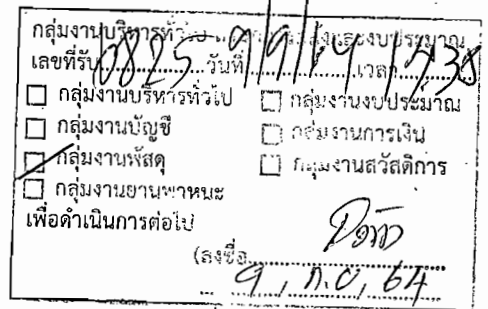 กลุ่มงานบริหารทั่วไป และงบประมาณ
เลขที่รับ 0825 วันที่ 9/9/64 เวลา 1538
☐ กลุ่มงานบริหารทั่วไป ☐ กลุ่มงานงบประมาณ
☐ กลุ่มงานบัญชี ☐ กลุ่มงานการเงิน
☐ กลุ่มงานพัสดุ ☐ กลุ่มงานสวัสดิการ
☐ กลุ่มงานยานพาหนะ
เพื่อดำเนินการต่อไป
(ลงชื่อ
9 / ก.ย / 64